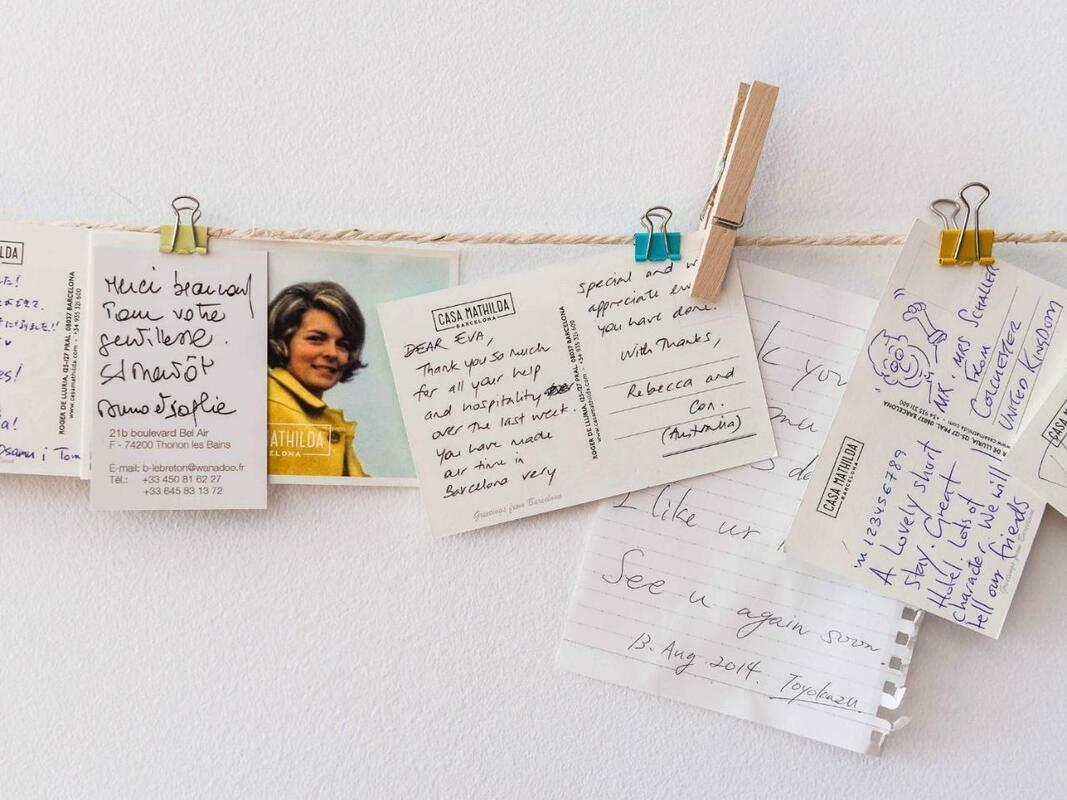 LDA
ROGER DE LLURIA, 125-127 PRAL. 08037 BARCELONA
www.casamathilda.com · +34 935 321 600
es!
a!
Osamu i Tom
Merci beaucoup
Pour votre
gentillesse.
à bientôt
21b boulevard Bel Air
F - 74200 Thonon les Bains
E-mail: b-lebreton@wanadoo.fr
Tél.: +33 450 81 62 27
+33 645 83 13 72
ATHILDA
ELONA
CASA MATHILDA
BARCELONA
DEAR EVA,
Thank you so much
for all your help
and hospitality
over the last week.
You have made
our time in
Barcelona very
Greetings from Barcelona
ROGER DE LLURIA, 125-127 PRAL. 08037 BARCELONA
www.casamathilda.com · +34 935 321 600
special and w
appreciate ev
you have done.
With Thanks,
Rebecca and
Con.
(Australia)
you
I like ur
See u again soon.
13. Aug. 2014.
Toyokazu
MR · MRS SCHALLER
FROM
COLCHESTER
UNITED KINGDOM
CASA MATHILDA
BARCELONA
123456789
A Lovely short
stay. Great
Hotel. Lots of
character. We will
tell our friends
CASA